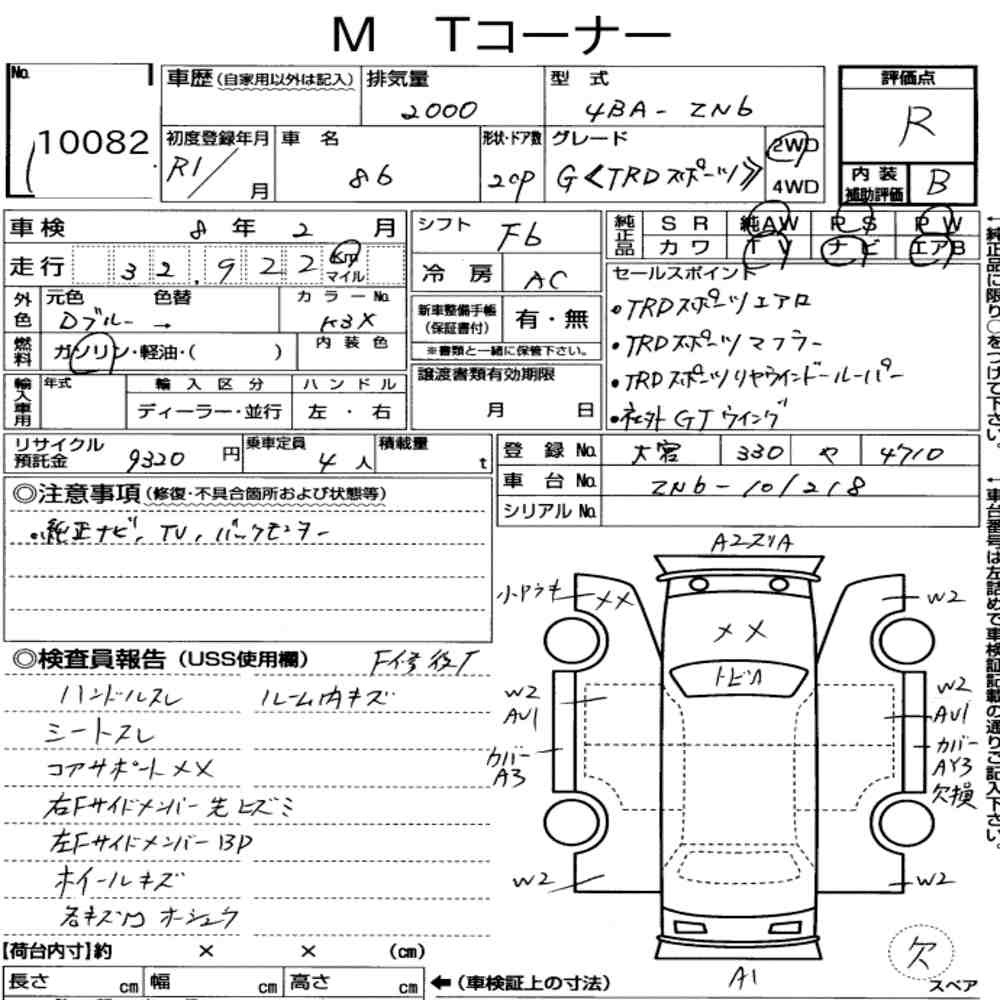 M Tコーナー
No. 10082
車歴(自家用以外は記入)
排気量 2000
型式 4BA-ZN6
評価点 R
初度登録年月 R1/ 月
車名 86
形状・ドア数 2CP
グレード G《TRDスポーツ》
2WD
4WD
内装補助評価 B
車検 8年2月
走行 32,922 km マイル
シフト F6
冷房 AC
純正品 SR 純AW PS PW
カワ TV ナビ エアB
外色 元色 Dブルー → 色替 カラーNo. K3X
燃料 ガソリン・軽油・( ) 内装色
新車整備手帳(保証書付) 有・無
※書類と一緒に保管下さい。
セールスポイント
・TRDスポーツエアロ
・TRDスポーツマフラー
・TRDスポーツリヤウインドールーバー
・社外GTウイング
輸入車用 年式 輸入区分 ハンドル
ディーラー・並行 左・右
譲渡書類有効期限 月 日
リサイクル預託金 9320円
乗車定員 4人
積載量 t
登録No. 大宮 330 や 4710
車台No. ZN6-101218
シリアルNo.
◎注意事項(修復・不具合箇所および状態等)
・純正ナビ、TV、バックモニター
◎検査員報告(USS使用欄) F修復T
ハンドルスレ ルーム内キズ
シートスレ
コアサポートXX
右Fサイドメンバー先ヒズミ
左FサイドメンバーBP
ホイールキズ
A2スリA
小ワウキ XX
XX
W2
トビル
W2 AU1
カバー A3
W2
W2
AU1
カバー AY3 欠損
W2
A1
欠
スペア
【荷台内寸】約 × × (cm)
長さ cm 幅 cm 高さ cm
←(車検証上の寸法)
←純正品に限り○をつけて下さい。
←車台番号は左詰めで車検証記載の通りご記入下さい。